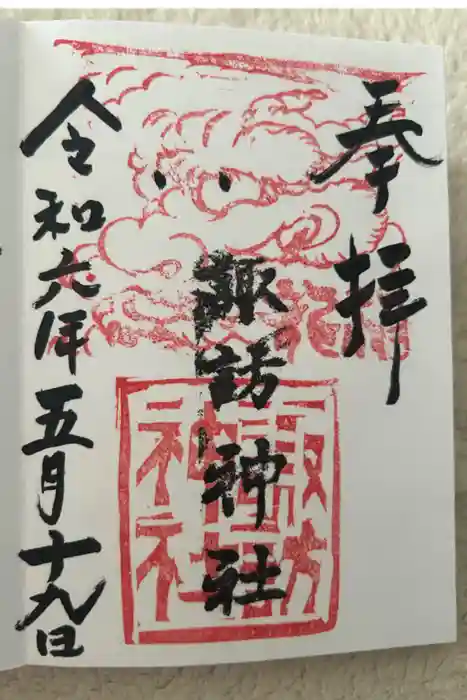 奉拝
諏訪神社
諏訪神社
令和六年五月十九日